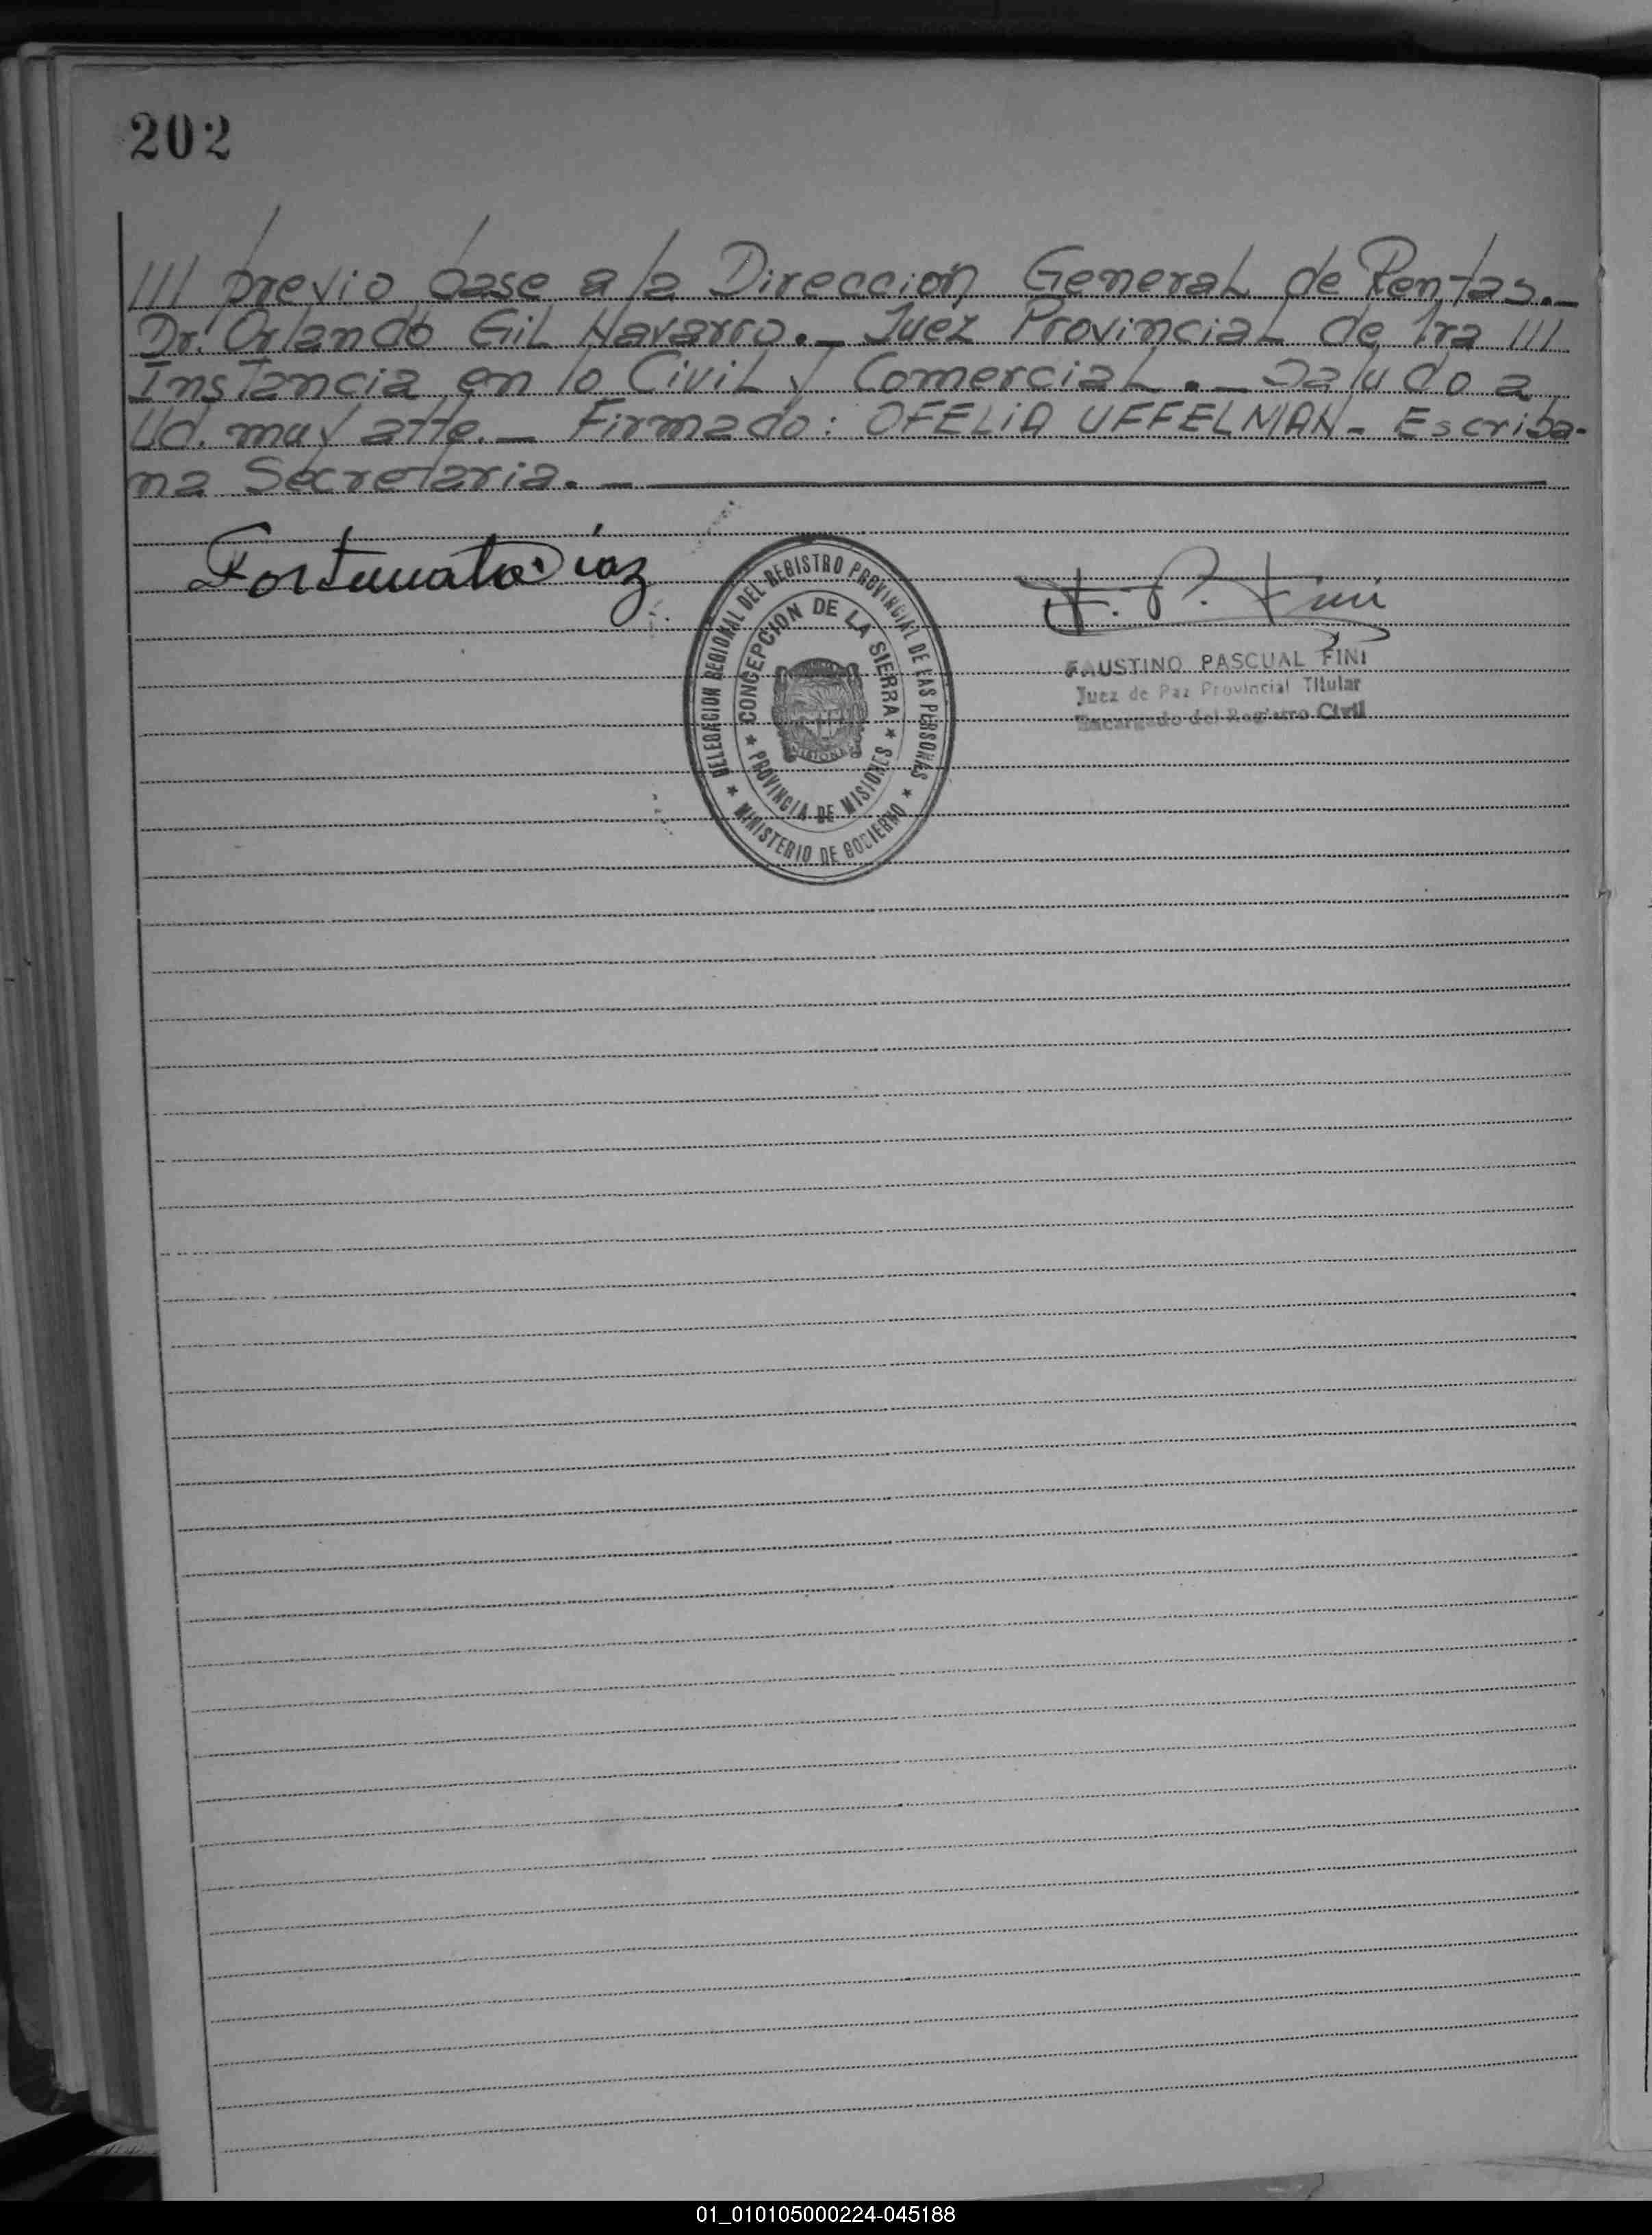 202
/// previo pase a la Dirección General de Rentas.—
Dr. Orlando Gil Navarro.— Juez Provincial de 1ra ///
Instancia en lo Civil y Comercial.— Saludo a
Ud. muy atte.— Firmado: OFELIA UFFELMAN- Escriba-
na Secretaria.—
Fortunato Díaz
F. P. Fini
DELEGACION REGIONAL DEL REGISTRO PROVINCIAL DE LAS PERSONAS
★ MINISTERIO DE GOBIERNO ★
CONCEPCION DE LA SIERRA
★ PROVINCIA DE MISIONES ★
MISIONES
FAUSTINO PASCUAL FINI
Juez de Paz Provincial Titular
Encargado del Registro Civil
01_010105000224-045188